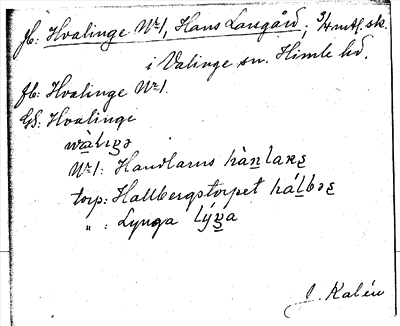 fb: Hvalinge Nr 1, Hans Larsgård, 3/4 mtl. sk.
i Valinge sn. Himle hd.
fb: Hvalinge Nr 1.
GS: Hvalinge
Nr 1: Handlarns
torp: Hallbergstorpet
" : Lynga
J. Kalén